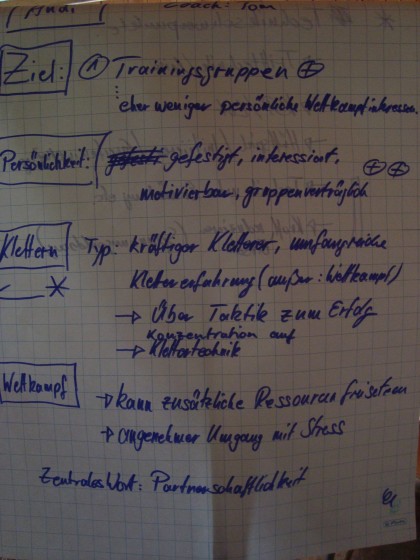 Andi Coach: Tom
Ziel: ① Trainingsgruppen ⊕
eher weniger persönliche Wettkampfinteressen.
Persönlichkeit: gefestigt, interessiert, ⊕ ⊕
motivierbar, gruppenverträglich
Klettern Typ: kräftiger Kletterer, umfangreiche
Klettererfahrung (außer: Wettkampf)
→ Über Taktik zum Erfolg
Konzentration auf
→ Klettertechnik
Wettkampf → kann zusätzliche Ressourcen freisetzen
→ angenehmer Umgang mit Stress
Zentrales Wort: Partnerschaftlichkeit